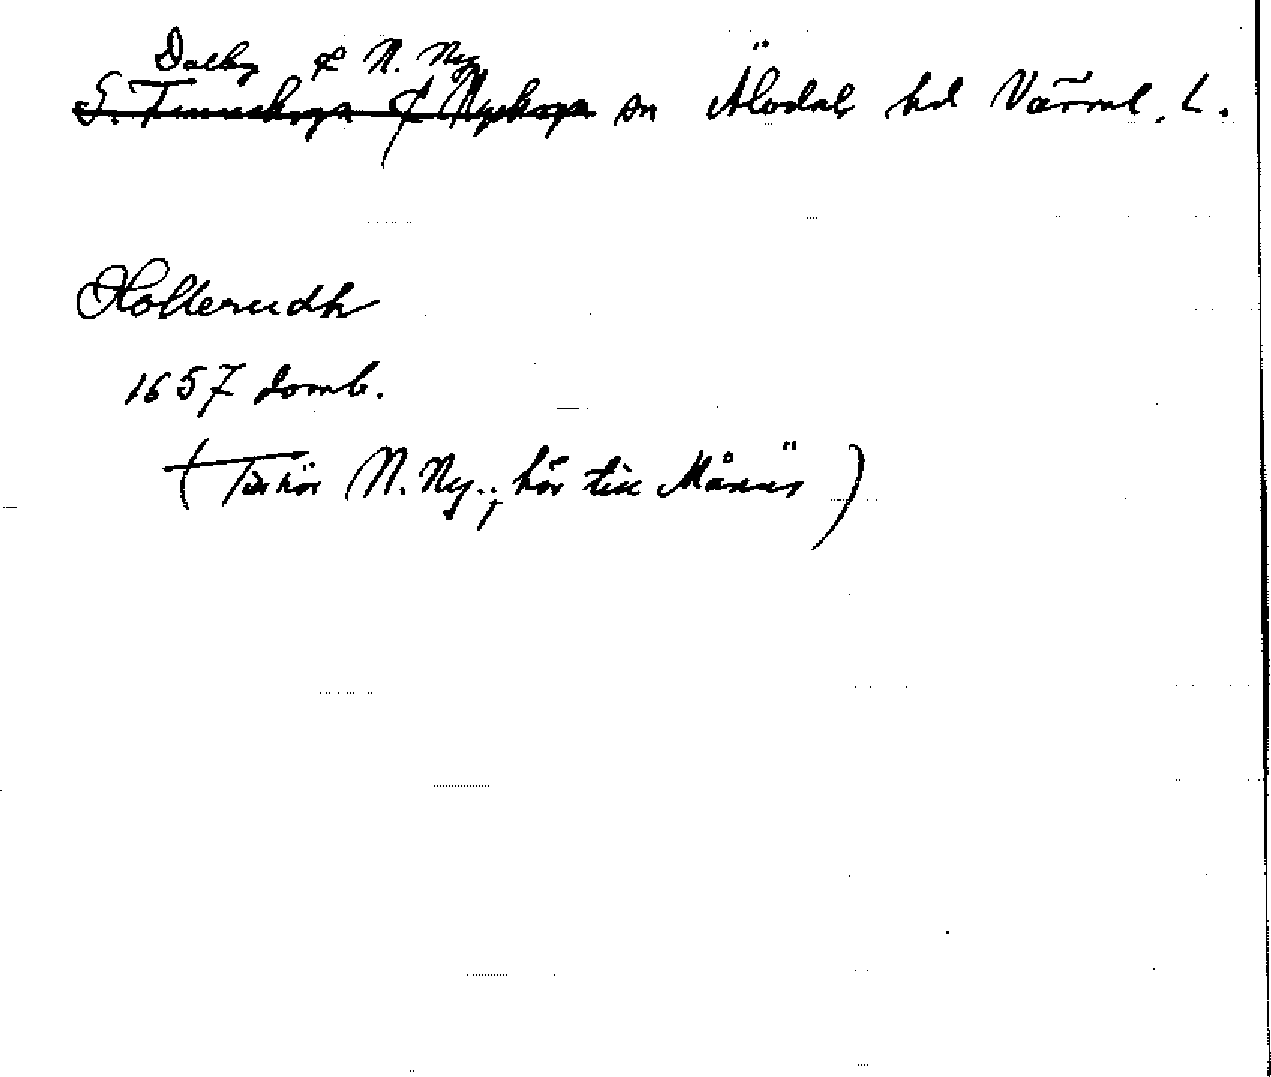 Dalby & N. Ny
S. Finnskoga & Nyskoga sn Älvdals hd Värml. L.
Hollerudh
1657 domb.
(Tillhör N. Ny., hör till Månäs)